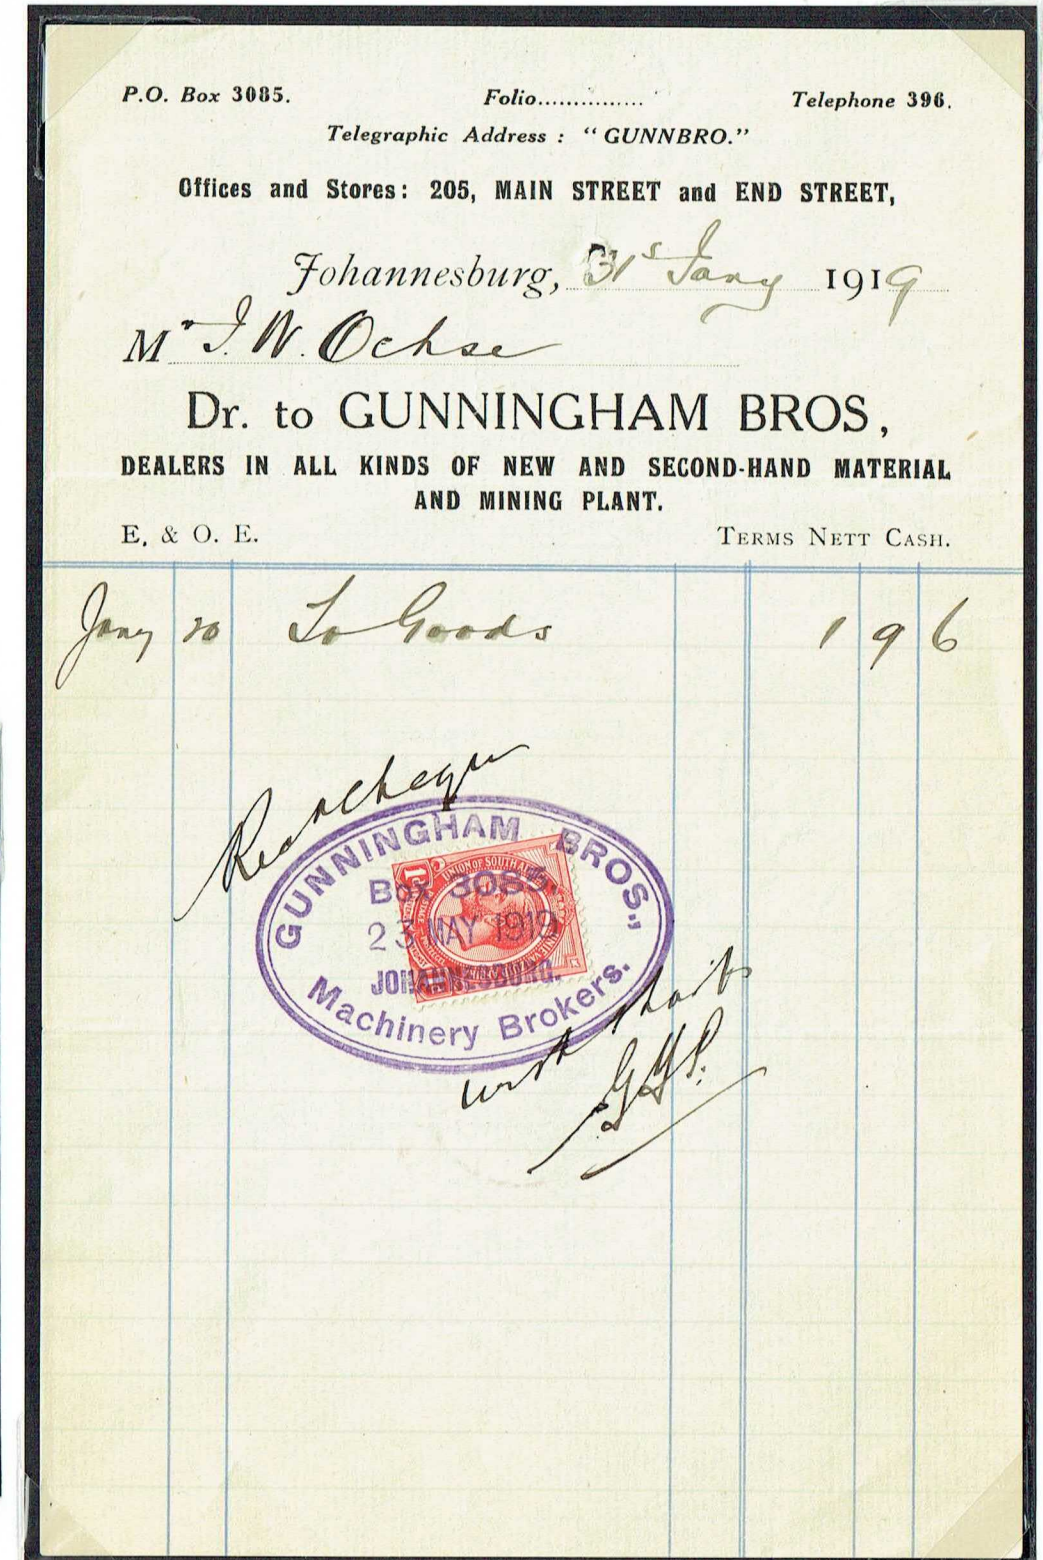 P.O. Box 3085. Folio............... Telephone 396.
Telegraphic Address : "GUNNBRO."
Offices and Stores: 205, MAIN STREET and END STREET,
Johannesburg, 31s Jany 1919
Mr J. W. Ochse
Dr. to GUNNINGHAM BROS,
DEALERS IN ALL KINDS OF NEW AND SECOND-HAND MATERIAL
AND MINING PLANT.
E. & O. E. TERMS NETT CASH.
Jany 20 To Goods 1 9 6
Recd cheque
GUNNINGHAM BROS.,
UNION OF SOUTH
Box 3085.
23 MAY 1919
JOHANNESBURG.
Machinery Brokers.
with thanks